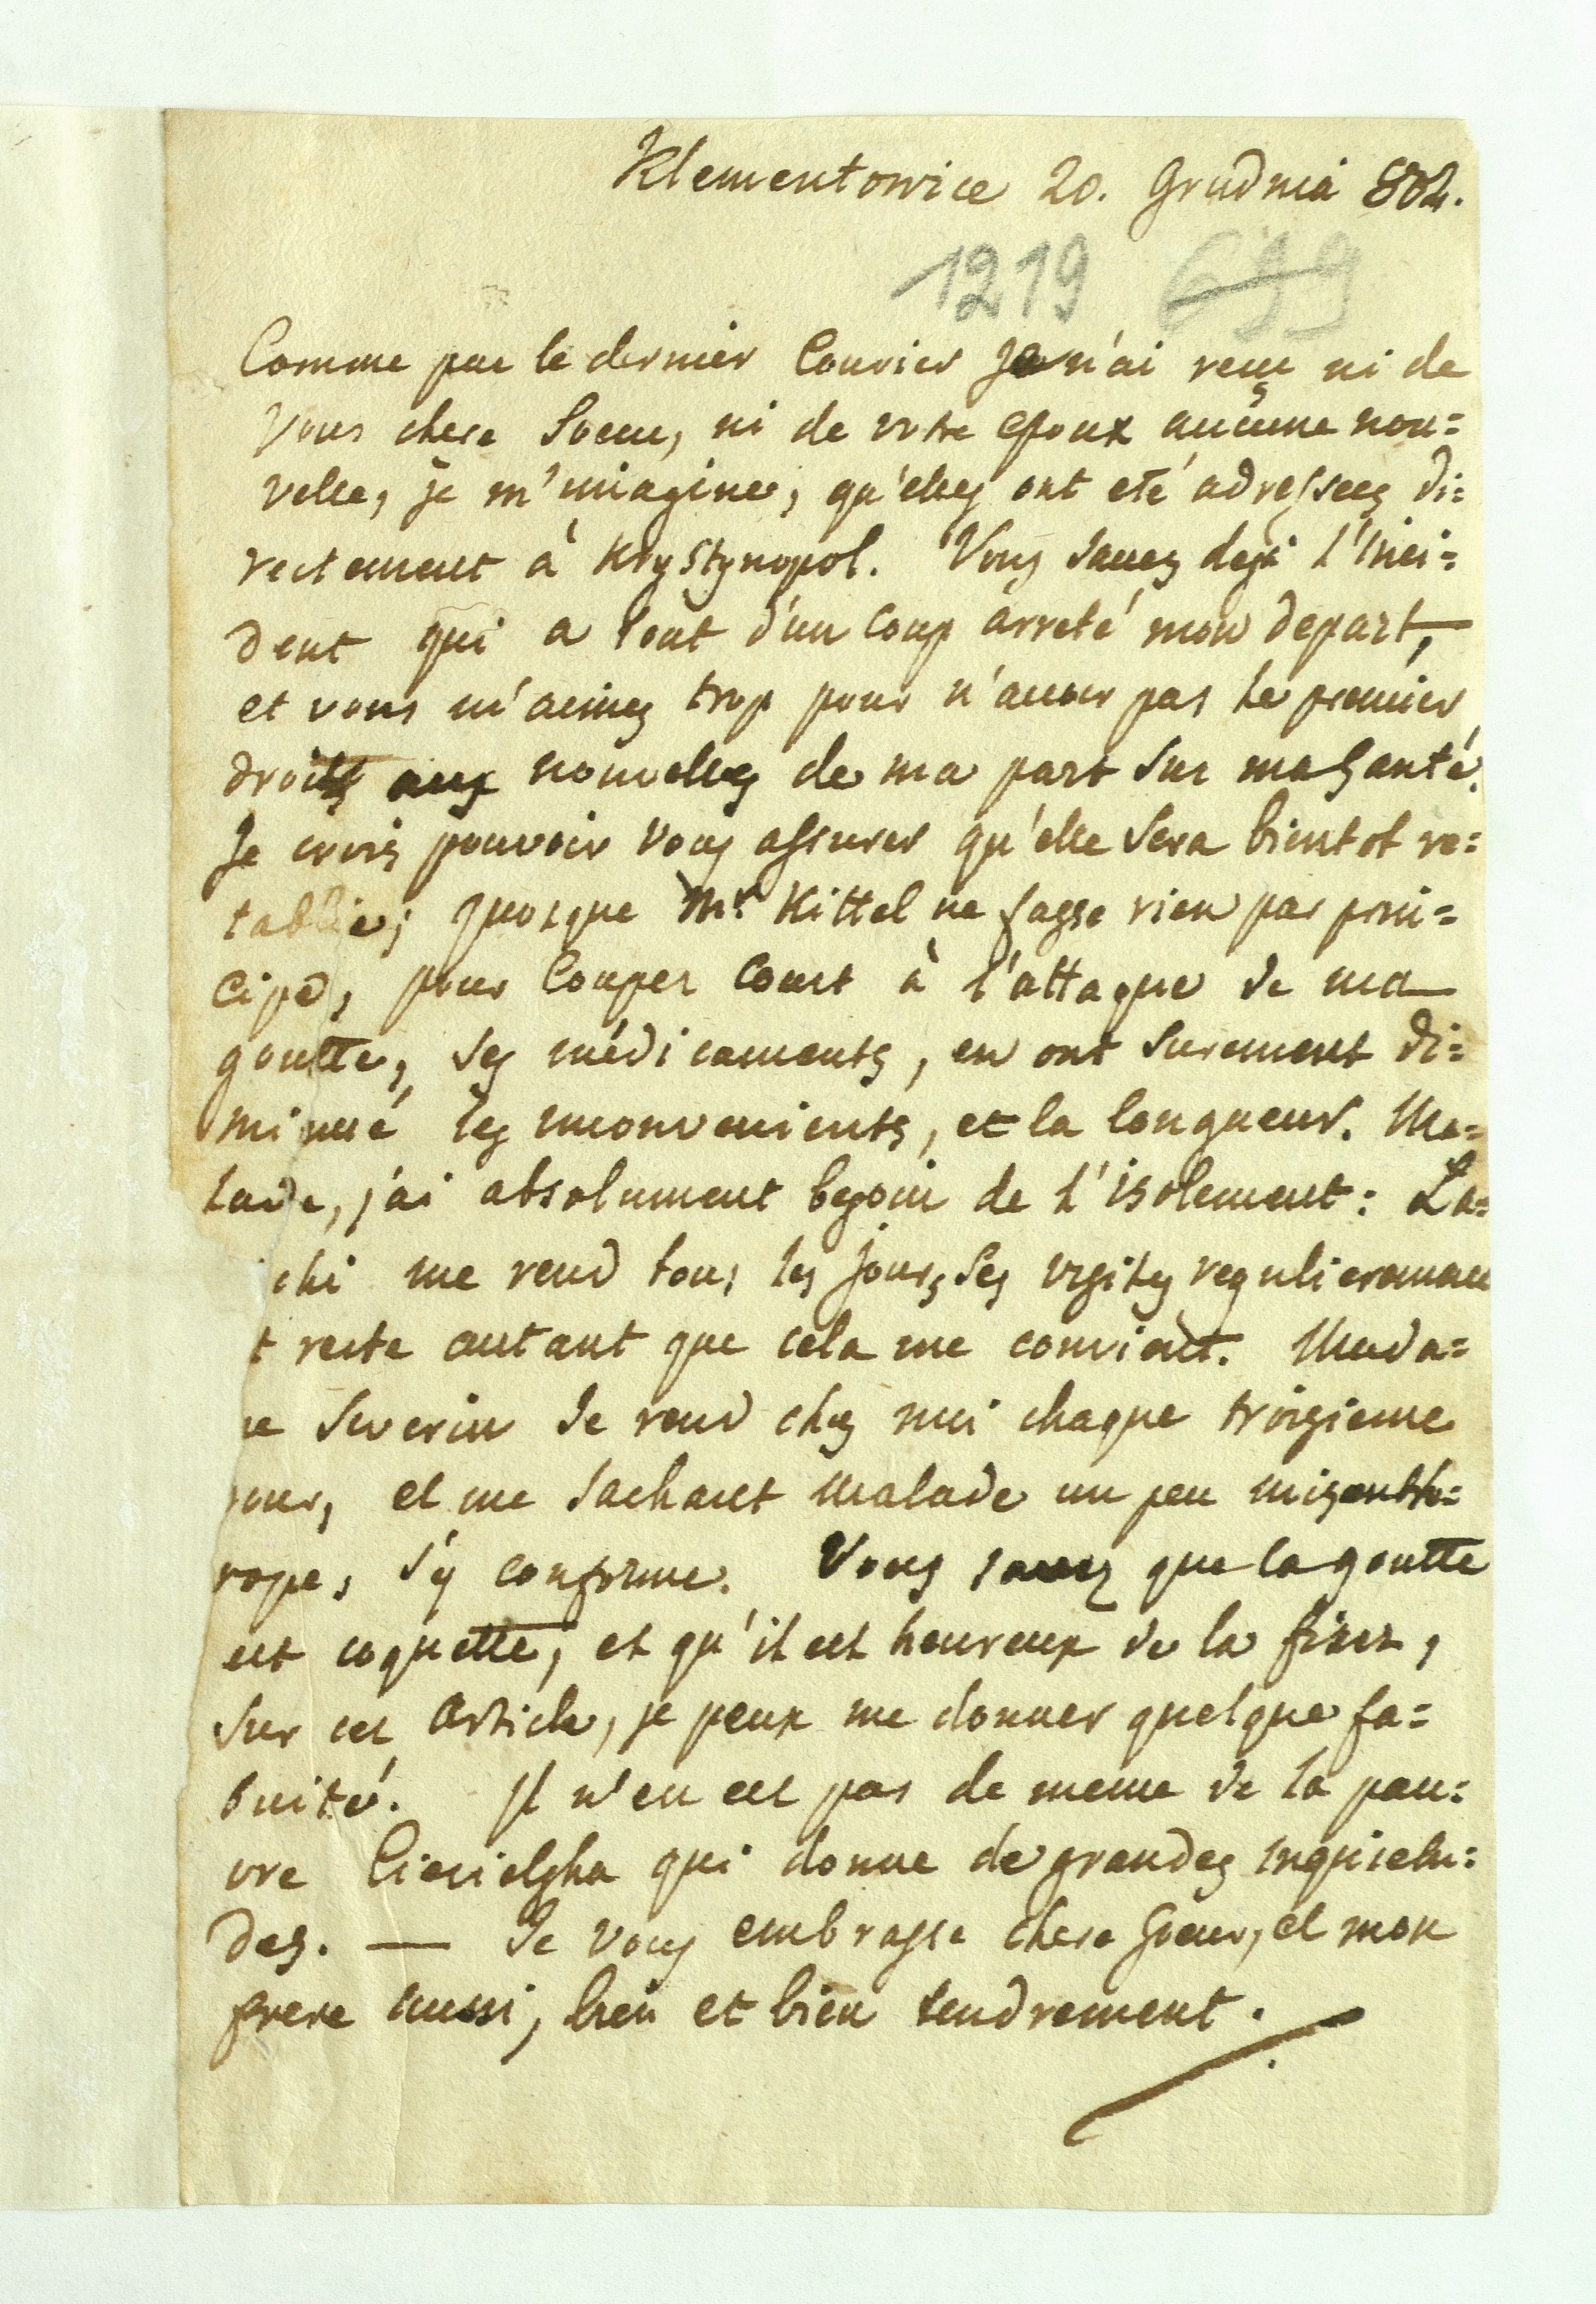 Klementowice 20. Grudnia 802.
1219 699
Comme par le dernier Courier Je n'ai reçu ni de
Vous chere Soeur, ni de votre epoux aucune nou=
velle, je m'imagine, qu'elles ont eté adressees di=
rectement à Krystynopol. Vous savez deja l'inci=
dent qui a tout d'un coup arreté mon depart,
et vous m'aimez trop pour n'avoir pas le premier
droit aux nouvelles de ma part sur ma santé.
Je crois pouvoir vous assurer qu'elle sera bientot re=
tablie; quoique Mr. Kittel ne fasse rien par prin=
cipe, pour Couper Court à l'attaque de ma
goutte, ses médicaments, en ont surement di=
minué les inconvenients, et la longueur. Ma=
lade, j'ai absolument besoin de l'isolement: La=
cki me rend tous les jours ses visites regulieremen
t reste autant que cela me convient. Mada=
me Severin se rend chez moi chaque troisieme
jour, et me sachant malade un peu misantho=
rope, s'y conforme. Vous savez que la goutte
est coquette, et qu'il est heureux de la fixer,
sur cet Article, je peux me donner quelque fa=
tuité. Il n'en est pas de meme de la pau=
vre qui donne de grandes inquietu=
des. — Je vous embrasse chere Soeur, et mon
frere aussi, bien et bien tendrement.